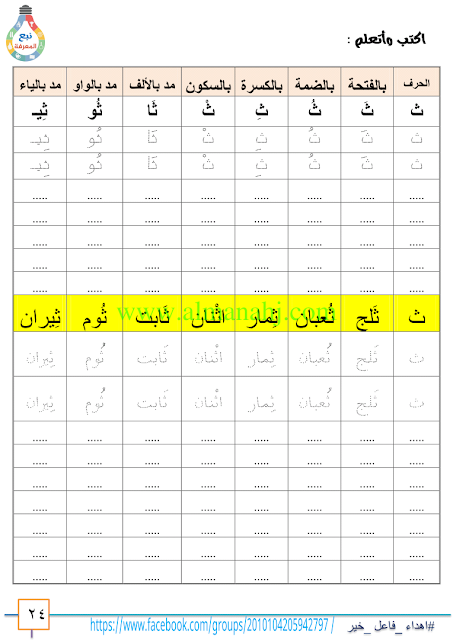 نبع
المعرفة
اكتب وأتعلم :
الحرف بالفتحة بالضمة بالكسرة بالسكون مد بالألف مد بالواو مد بالياء
ث ثَ ثُ ثِ ثْ ثَا ثُو ثِيـ
ث ثَ ثُ ثِ ثْ ثَا ثُو ثِيـ
ث ثَ ثُ ثِ ثْ ثَا ثُو ثِيـ
..... ..... ..... ..... ..... ..... ..... .....
..... ..... ..... ..... ..... ..... ..... .....
..... ..... ..... ..... ..... ..... ..... .....
..... ..... ..... ..... ..... ..... ..... .....
..... ..... ..... ..... ..... ..... ..... .....
ث ثَلج ثُعبان ثِمار اثْنان ثَابت ثُوم ثِيران
www.almanahj.com
ث ثَلج ثُعبان ثِمار اثْنان ثَابت ثُوم ثِيران
ث ثَلج ثُعبان ثِمار اثْنان ثَابت ثُوم ثِيران
..... ..... ..... ..... ..... ..... ..... .....
..... ..... ..... ..... ..... ..... ..... .....
..... ..... ..... ..... ..... ..... ..... .....
..... ..... ..... ..... ..... ..... ..... .....
..... ..... ..... ..... ..... ..... ..... .....
..... ..... ..... ..... ..... ..... ..... .....
..... ..... ..... ..... ..... ..... ..... .....
#اهداء_فاعل_خير
https://www.facebook.com/groups/2010104205942797/
٢٤